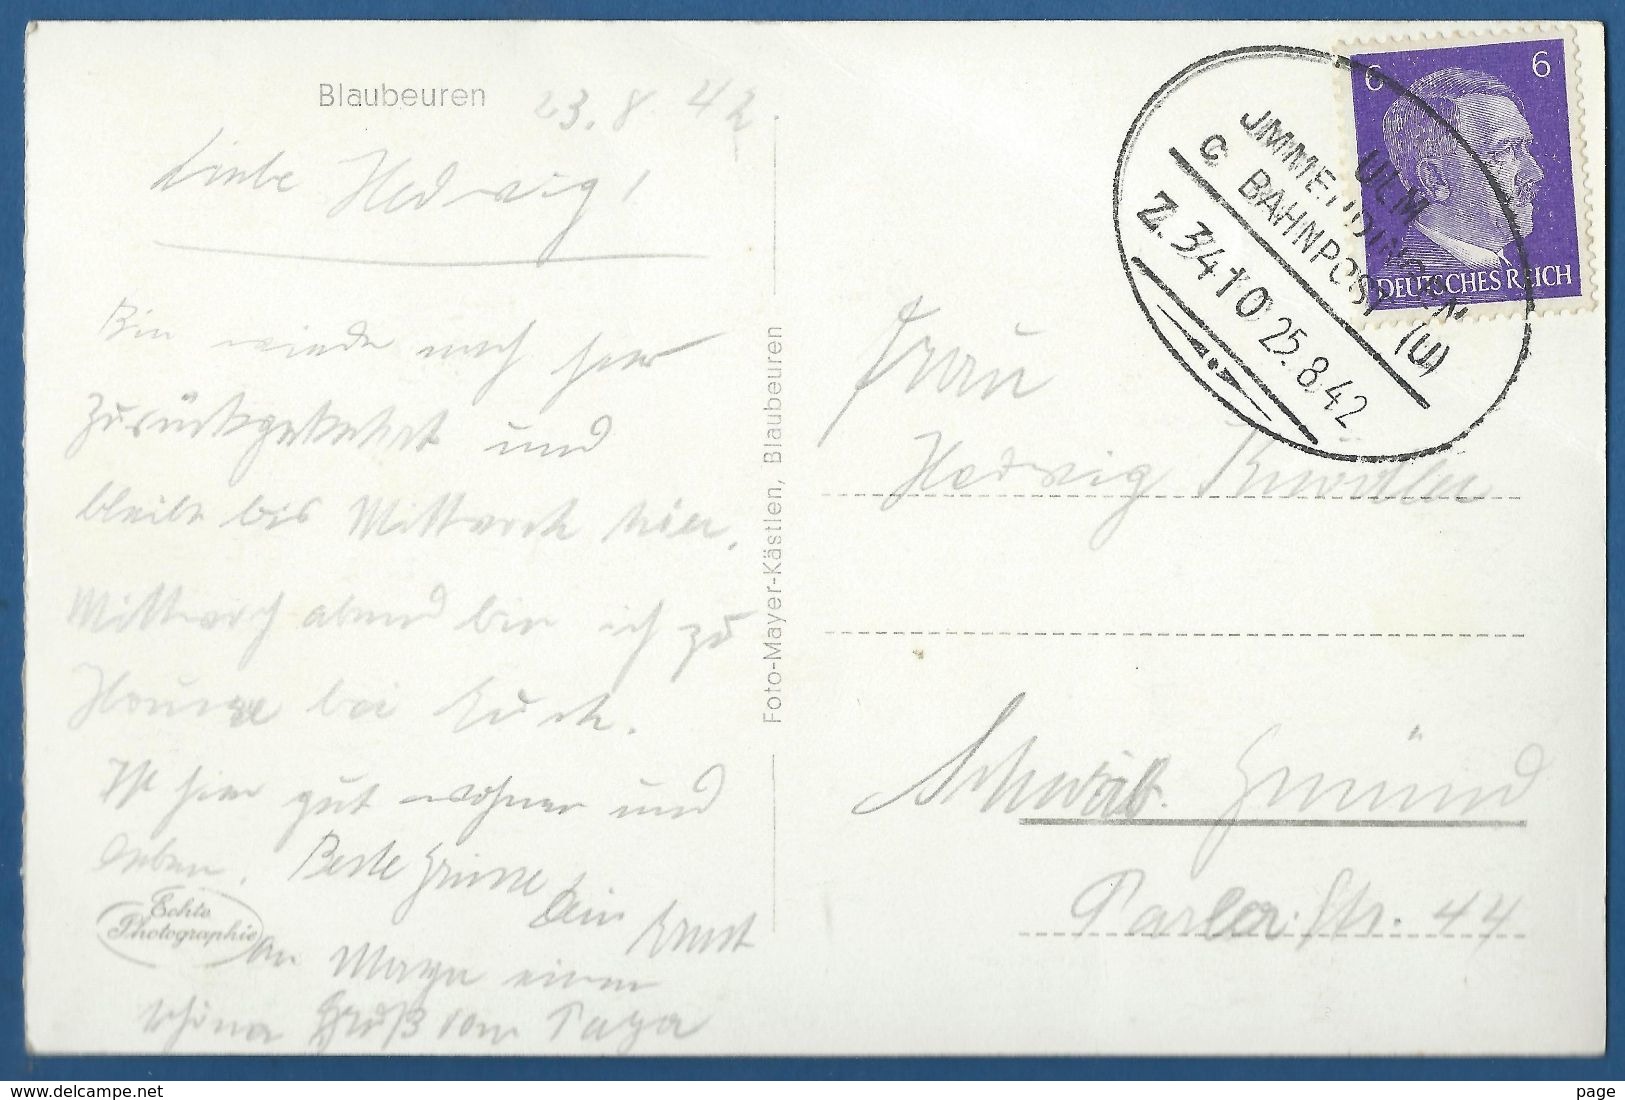 Blaubeuren 23.8.42.
Liebe Hedwig!
Bin wieder nach hier
zurückgekehrt und
bleibe bis Mittwoch hier.
Mittwoch abend bin ich zu
Hause bei Euch.
Ist hier gut wohnen und
leben. Beste Grüsse,
Dein Ernst
An Maya einen
schönen Gruß vom Papa
Echte
Photographie
Foto-Mayer-Kästlen, Blaubeuren
6 6
DEUTSCHES REICH
ULM
JMMENDINGEN
C BAHNPOST (Ü)
Z.3410 25.8.42
Frau
Hedwig
Schwäb. Gmünd
Parler Str. 44
page
delcampe.net